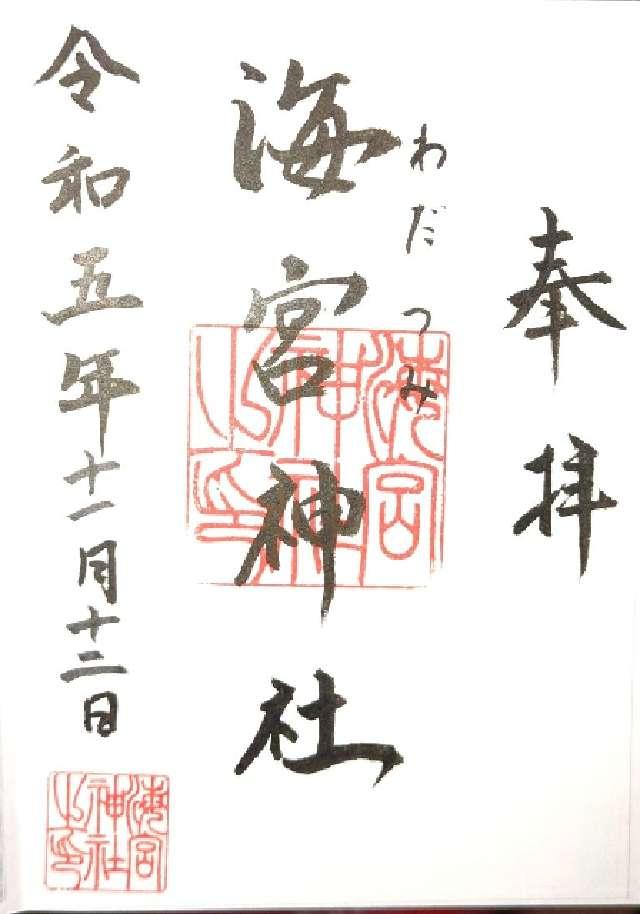 奉拝
わだつみ
海宮神社
海宮神社之印
令和五年十一月十二日
海宮神社之印